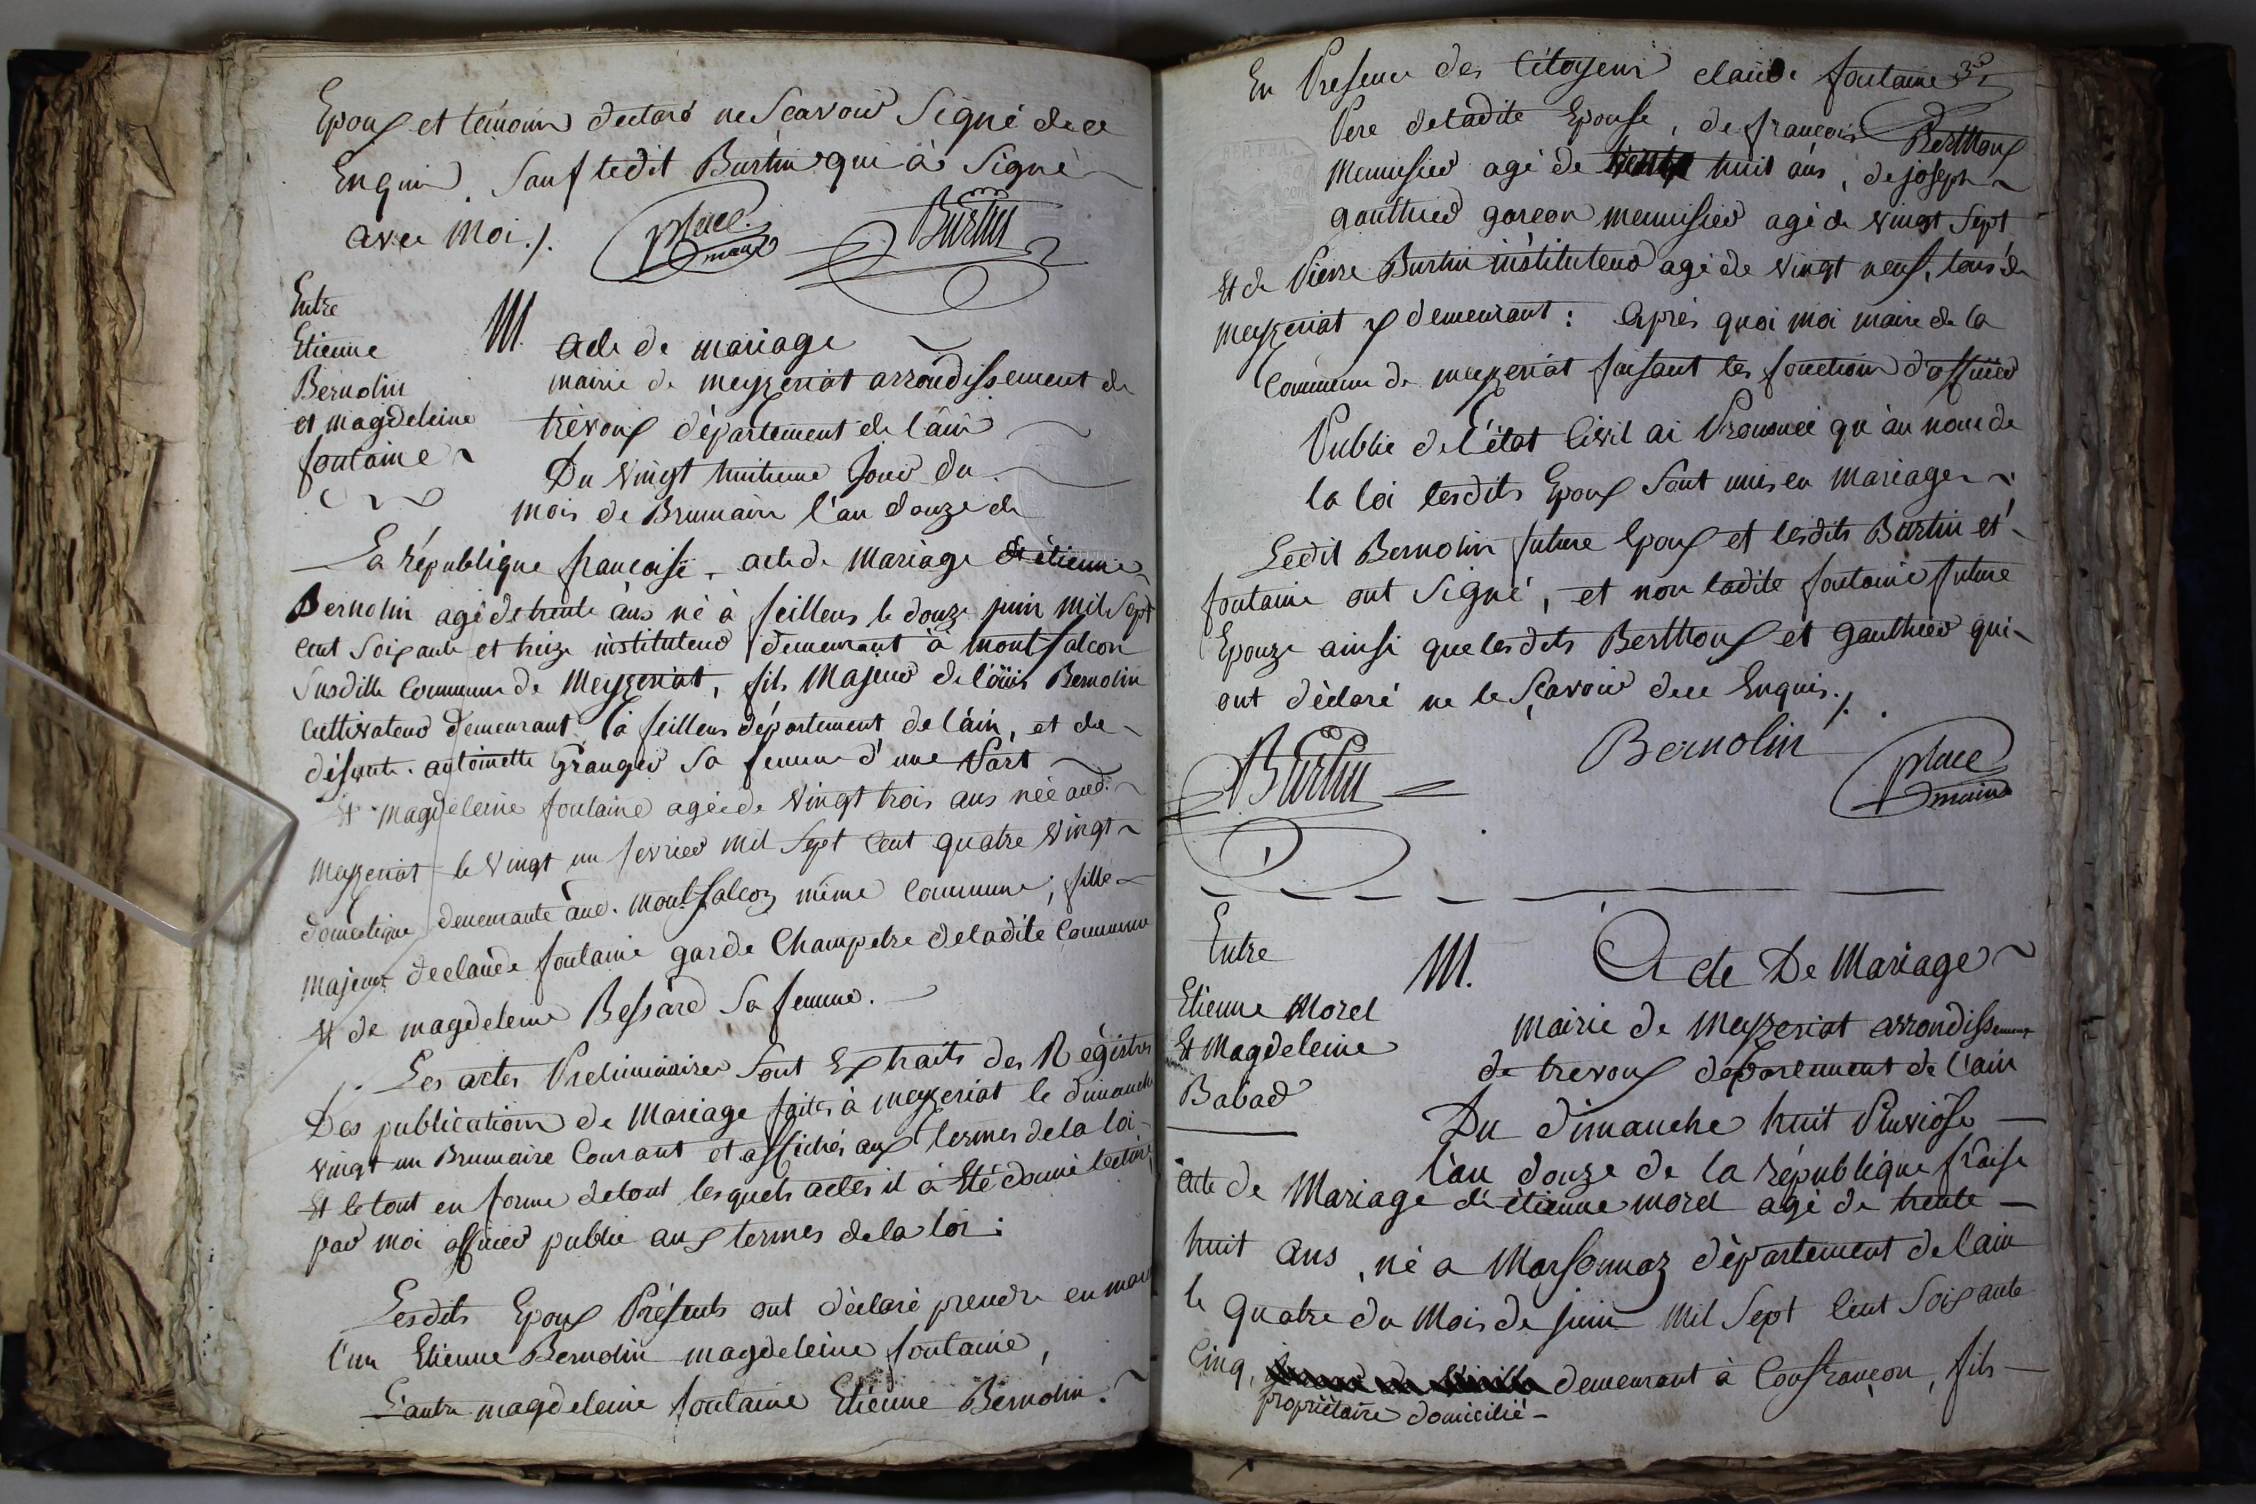 Epoux et témoins declaré ne Scavoir Signé de ce
Enquis, Sauf ledit Burtin qui à Signé
avec Moi ./.
place
maire
Burtin
Entre
Etienne
Bernolin
et magdeleine
fontaine
M.
acte de mariage
mairie de meyzeriat arrondissement de
trévoux département de l'ain
Du vingt huitieme Jour du
mois de Brumaire l'an douze de
La république francaise, acte de Mariage d'étienne
Bernolin agé de trente ans né à feillens le douze juin Mil Sept
cent Soixante et treize instituteur demeurant à montfalcon
Susditte Commune de Meyzeriat, fils Majeur de loüis Bernolin
Cultivateur demeurant à feillens département de l'ain, et de
défunte antoinette Granger Sa femme d'une Part
Et magdeleine fontaine agée de vingt trois ans née aud.
Meyzeriat le vingt un fevrier mil Sept Cent quatre vingt
domestique demeurante aud. Montfalcon même Commune, fille
majeure de claude fontaine garde Champetre de ladite Commune
et de magdeleine Bessard Sa femme.
Les actes Preliminaires Sont Extraits des Régistres
Des publications de Mariage faites à meyzeriat le dimanche
vingt un Brumaire Courant et affichés aux termes de la loi
Et le tout en forme de tout lesquels actes il à Eté donné lecture
par moi officier public aux termes de la loi :
Lesdits Epoux Présents ont déclaré prendre en
l'un Etienne Bernolin magdeleine fontaine,
L'autre magdeleine fontaine Etienne Bernolin.
En Presence des Citoyens claude fontaine
Pere de ladite Epouse, de francois Berthoux
Menuisier agé de huit ans, de joseph
gauthier garcon menuisier agé de vingt Sept
Et de Pierre Burtin instituteur agé de vingt neuf, tous de
meyzeriat y demeurant : après quoi moi maire de la
Commune de meyzeriat faisant les fonctions d'officier
Public de l'état Civil ai Prononcé qu'au nom de
la loi lesdits Epoux Sont unis en Mariage
Ledit Bernolin future Epoux et lesdits Burtin et
fontaine ont Signé, et non ladite fontaine future
Epouze ainsi que lesdits Berthoux et gauthier qui
ont déclaré ne le Scavoir de ce Enquis ./.
Burtin
Bernolin
place
maire
Entre
Etienne Morel
Et Magdeleine
Babad
M.
Acte De Mariage
Mairie de Meyzeriat arrondissement
de trevoux département de l'ain
Du dimanche huit Pluviose
l'an douze de la république fraise
acte de Mariage d'étienne morel agé de trente
huit ans, né a Marsonnaz département de l'ain
le quatre du Mois de juin Mil Sept Cent Soixante
Cinq, demeurant à Confrançon, fils
propriétaire domicilié